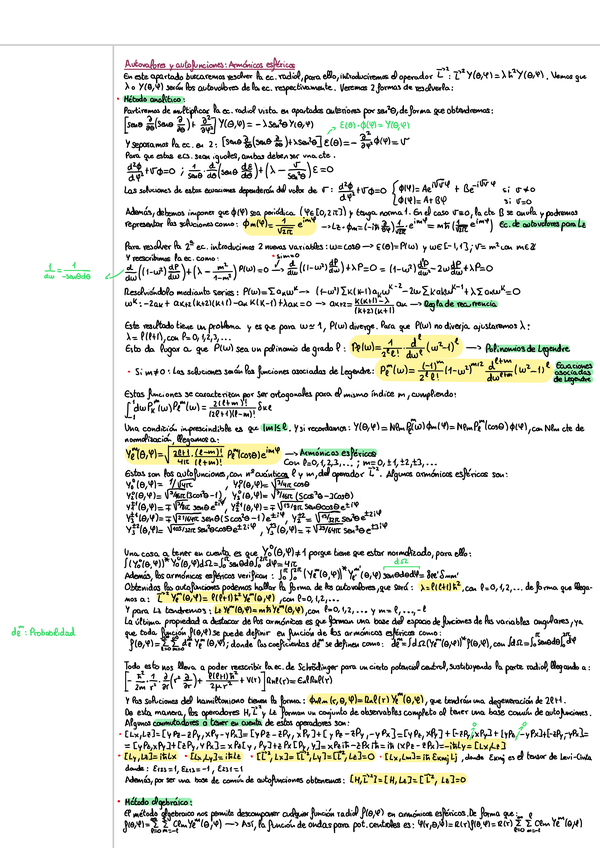 Autovalores y autofunciones: Armónicos esféricos
En este apartado buscaremos resolver la ec. radial, para ello, introduciremos el operador L̂²: L̂² Y(θ,φ) = λħ²Y(θ,φ). Vemos que
λ o Y(θ,φ) serán los autovalores de la ec. respectivamente. Veremos 2 formas de resolverla:
• Método analítico:
Partiremos de multiplicar la ec. radial vista en apartados anteriores por sen²θ, de forma que obtendremos:
[senθ ∂/∂θ (senθ ∂/∂θ) + ∂²/∂φ²] Y(θ,φ) = -λ sen²θ Y(θ,φ)
Ɛ(θ)·ϕ(φ) = Y(θ,φ)
Y separamos la ec. en 2: [senθ ∂/∂θ (senθ ∂/∂θ) + λsen²θ] Ɛ(θ) = - ∂²/∂φ² ϕ(φ) = ν
Para que estas ecs. sean iguales, ambas deben ser una cte.
d²ϕ/dφ² + νϕ = 0 ; 1/senθ · d/dθ (senθ dƐ/dθ) + (λ - ν/sen²θ) Ɛ = 0
Las soluciones de estas ecuaciones dependerán del valor de ν: d²ϕ/dφ² + νϕ = 0 { ϕ(φ) = Ae^{i√ν φ} + Be^{-i√ν φ} si ν ≠ 0
ϕ(φ) = A + Bφ si ν = 0
Además, debemos imponer que ϕ(φ) sea periódica (φ ∈ [0, 2π]) y tenga norma 1. En el caso ν = 0, la cte B se anula y podremos
representar las soluciones como: ϕm(φ) = 1/√2π e^{imφ} → Lz·ϕm = (-iħ ∂/∂φ) 1/√2π e^{imφ} = mħ (1/√2π e^{imφ}) Ec. de autovalores para Lz
Para resolver la 2ª ec. introducimos 2 nuevas variables: ω = cosθ → Ɛ(θ) = P(ω) y ω ∈ [-1,1]; ν = m² con m ∈ ℤ
Y reescribimos la ec. como:
si m = 0
1/dω = 1/-senθdθ
d/dω ((1-ω²) dP/dω) + (λ - m²/1-m²) P(ω) = 0 → d/dω ((1-ω²) dP/dω) + λP = 0 = (1-ω²) d²P/dω² - 2ω dP/dω + λP = 0
Resolviéndolo mediante series: P(ω) = Σ akω^k → (1-ω²) Σ k(k-1) akω^{k-2} - 2ω Σ kakω^{k-1} + λ Σ akω^k = 0
ω^k: -2ak + ak+2(k+2)(k+1) - ak k(k-1) + λak = 0 → ak+2 = k(k+1)-λ/(k+2)(k+1) ak → Regla de recurrencia
Este resultado tiene un problema y es que para ω ≃ 1, P(ω) diverge. Para que P(ω) no diverja ajustaremos λ:
λ = l(l+1), con l = 0,1,2,3,...
Esto da lugar a que P(ω) sea un polinomio de grado l: Pl(ω) = 1/2^l l! · d^l/dω^l (ω²-1)^l → Polinomios de Legendre
• Si m ≠ 0: Las soluciones serán las funciones asociadas de Legendre: Pl^m(ω) = (-1)^m/2^l l! (1-ω²)^{m/2} d^{l+m}/dω^{l+m} (ω²-1)^l Ecuaciones asociadas de Legendre
Estas funciones se caracterizan por ser ortogonales para el mismo índice m, cumpliendo:
∫₋₁¹ dω Pk^m(ω) Pl^m(ω) = 2(l+m)!/(2l+1)(l-m)! δkl
Una condición imprescindible es que |m| ≤ l. Y si recordamos: Y(θ,φ) = Nlm Pl^m(ω) ϕm(φ) = Nlm Pl^m(cosθ) ϕ(φ), con Nlm cte de
normalización, llegamos a:
Yl^m(θ,φ) = √(2l+1/4π · (l-m)!/(l+m)!) Pl^m(cosθ) e^{imφ} → Armónicos esféricos
Con l = 0,1,2,3,...; m = 0, ±1, ±2, ±3,...
Estas son las autofunciones, con nº cuánticos l y m, del operador L̂². Algunos armónicos esféricos son:
Y0^0(θ,φ) = 1/√4π , Y1^0(θ,φ) = √3/4π cosθ
Y2^0(θ,φ) = √5/16π (3cos²θ-1), Y3^0(θ,φ) = √7/16π (5cos³θ-3cosθ)
Y1^±1(θ,φ) = ∓√3/8π senθ e^{±iφ}, Y2^±1(θ,φ) = ∓√15/8π senθcosθ e^{±iφ}
Y3^±1(θ,φ) = ∓√21/64π senθ(5cos²θ-1) e^{±iφ}, Y2^±2 = √15/32π sen²θ e^{±2iφ}
Y3^±2(θ,φ) = √105/32π sen²θcosθ e^{±2iφ}, Y3^±3(θ,φ) = ∓√35/64π sen³θ e^{±3iφ}
Una cosa a tener en cuenta es que Y0^0(θ,φ) ≠ 1 porque tiene que estar normalizado, para ello:
∫(Y0^0(θ,φ))* Y0^0(θ,φ) dΩ = ∫₀^π senθdθ ∫₀^2π dφ = 4π
dΩ
Además, los armónicos esféricos verifican: ∫₀^π ∫₀^2π (Yl^m(θ,φ))* Yl'^m'(θ,φ) senθdθdφ = δll' δmm'
Obtenidas las autofunciones podemos hallar la forma de los autovalores, que será: λ = l(l+1)ħ², con l = 0,1,2,3,... de forma que llega-
mos a: L̂² Yl^m(θ,φ) = l(l+1)ħ² Yl^m(θ,φ), con l = 0,1,2,...
Y para Lz tendremos: Lz Yl^m(θ,φ) = mħ Yl^m(θ,φ), con l = 0,1,2,... y m = l,...,-l
La última propiedad a destacar de los armónicos es que forman una base del espacio de funciones de las variables angulares, ya
que toda función f(θ,φ) se puede definir en función de los armónicos esféricos como:
dl^m: Probabilidad
f(θ,φ) = Σ Σ dl^m Yl^m(θ,φ); donde los coeficientes dl^m se definen como: dl^m = ∫dΩ (Yl^m(θ,φ))* f(θ,φ), con ∫dΩ = ∫₀^π senθdθ ∫₀^2π dφ
Todo esto nos lleva a poder reescribir la ec. de Schrödinger para un cierto potencial central, sustituyendo la parte radial, llegando a:
[- ħ²/2m · 1/r² ∂/∂r (r² ∂/∂r) + l(l+1)ħ²/2μr² + V(r)] Rnl(r) = Enl Rnl(r)
Y las soluciones del hamiltoniano tienen la forma: ϕnlm(r,θ,φ) = Rnl(r) Yl^m(θ,φ), que tendrán una degeneración de 2l+1.
De esta manera, los operadores H, L̂² y Lz forman un conjunto de observables completo al tener una base común de autofunciones.
Algunos conmutadores a tener en cuenta de estos operadores son:
• [Lx,Lz] = [yPz-zPy, xPy-yPx] = [yPz, xPy] + [-zPy, xPy] + [yPz, -yPx] + [-zPy, -yPx] =
[Ly,Lz] = iħLx • [Lx,Ly] = iħLz • [L̂²,Lx] = [L̂²,Ly] = [L̂²,Lz] = 0
donde: ε123 = 1, ε213 = -1, ε231 = 1
Además, por ser una base de común de autofunciones obtenemos: [H,L̂²] = [H,Lz] = [L̂²,Lz] = 0
• Método algebraico:
El método algebraico nos permite descomponer cualquier función radial f(θ,φ) en armónicos esféricos. De forma que:
f(θ,φ) = Σ Σ Clm Yl^m(θ,φ) → Así, la función de ondas para pot. centrales es: Ψ(r,θ,φ) = R(r) f(θ,φ) = R(r) Σ Σ Clm Yl^m(θ,φ)